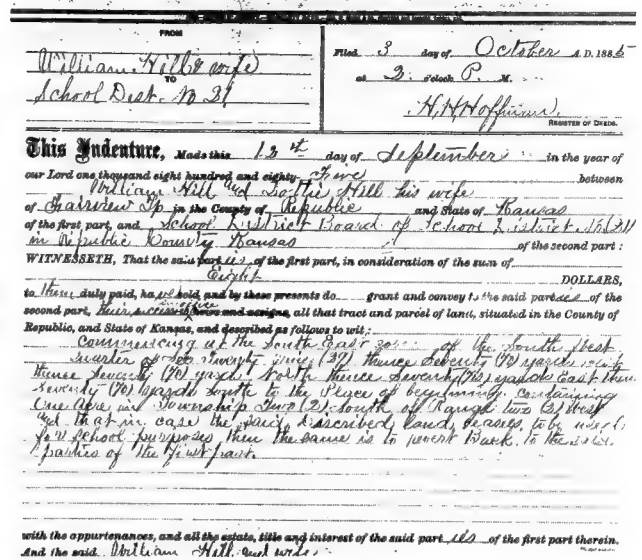 FROM
William Hill & wife
TO
School Dist. No 21
Filed 3 day of October A.D. 1885
at 2 o'clock P. M.
H. H. Hoffman,
REGISTER OF DEEDS.
This Indenture, Made this 12th day of September in the year of
our Lord one thousand eight hundred and eighty-Five between
William Hill and Lottie Hill his wife
of Fairview Tp in the County of Republic and State of Kansas
of the first part, and School District Board of School District
in Republic County Kansas of the second part:
WITNESSETH, That the said parties of the first part, in consideration of the sum of
Eight DOLLARS,
to them duly paid, have sold, and by these presents do grant and convey to the said parties of the
second part, their successors heirs and assigns, all that tract and parcel of land, situated in the County of
Republic, and State of Kansas, and described as follows to wit:
Commencing at the South East corn of the South West
Quarter of Sec Twenty thence Seventy (70) yards
thence Seventy (70) yards North thence Seventy (70) yards East then
Seventy (70) yards South to the Place of beginning containing
One Acre in Township Two (2) South of Range two (2) West
and that in case the said Discribed land, ceases, to be used
for school purposes then the same is to revert Back to the
parties of the first part.
with the appurtenances, and all the estate, title and interest of the said parties of the first part therein.
And the said William Hill and wife